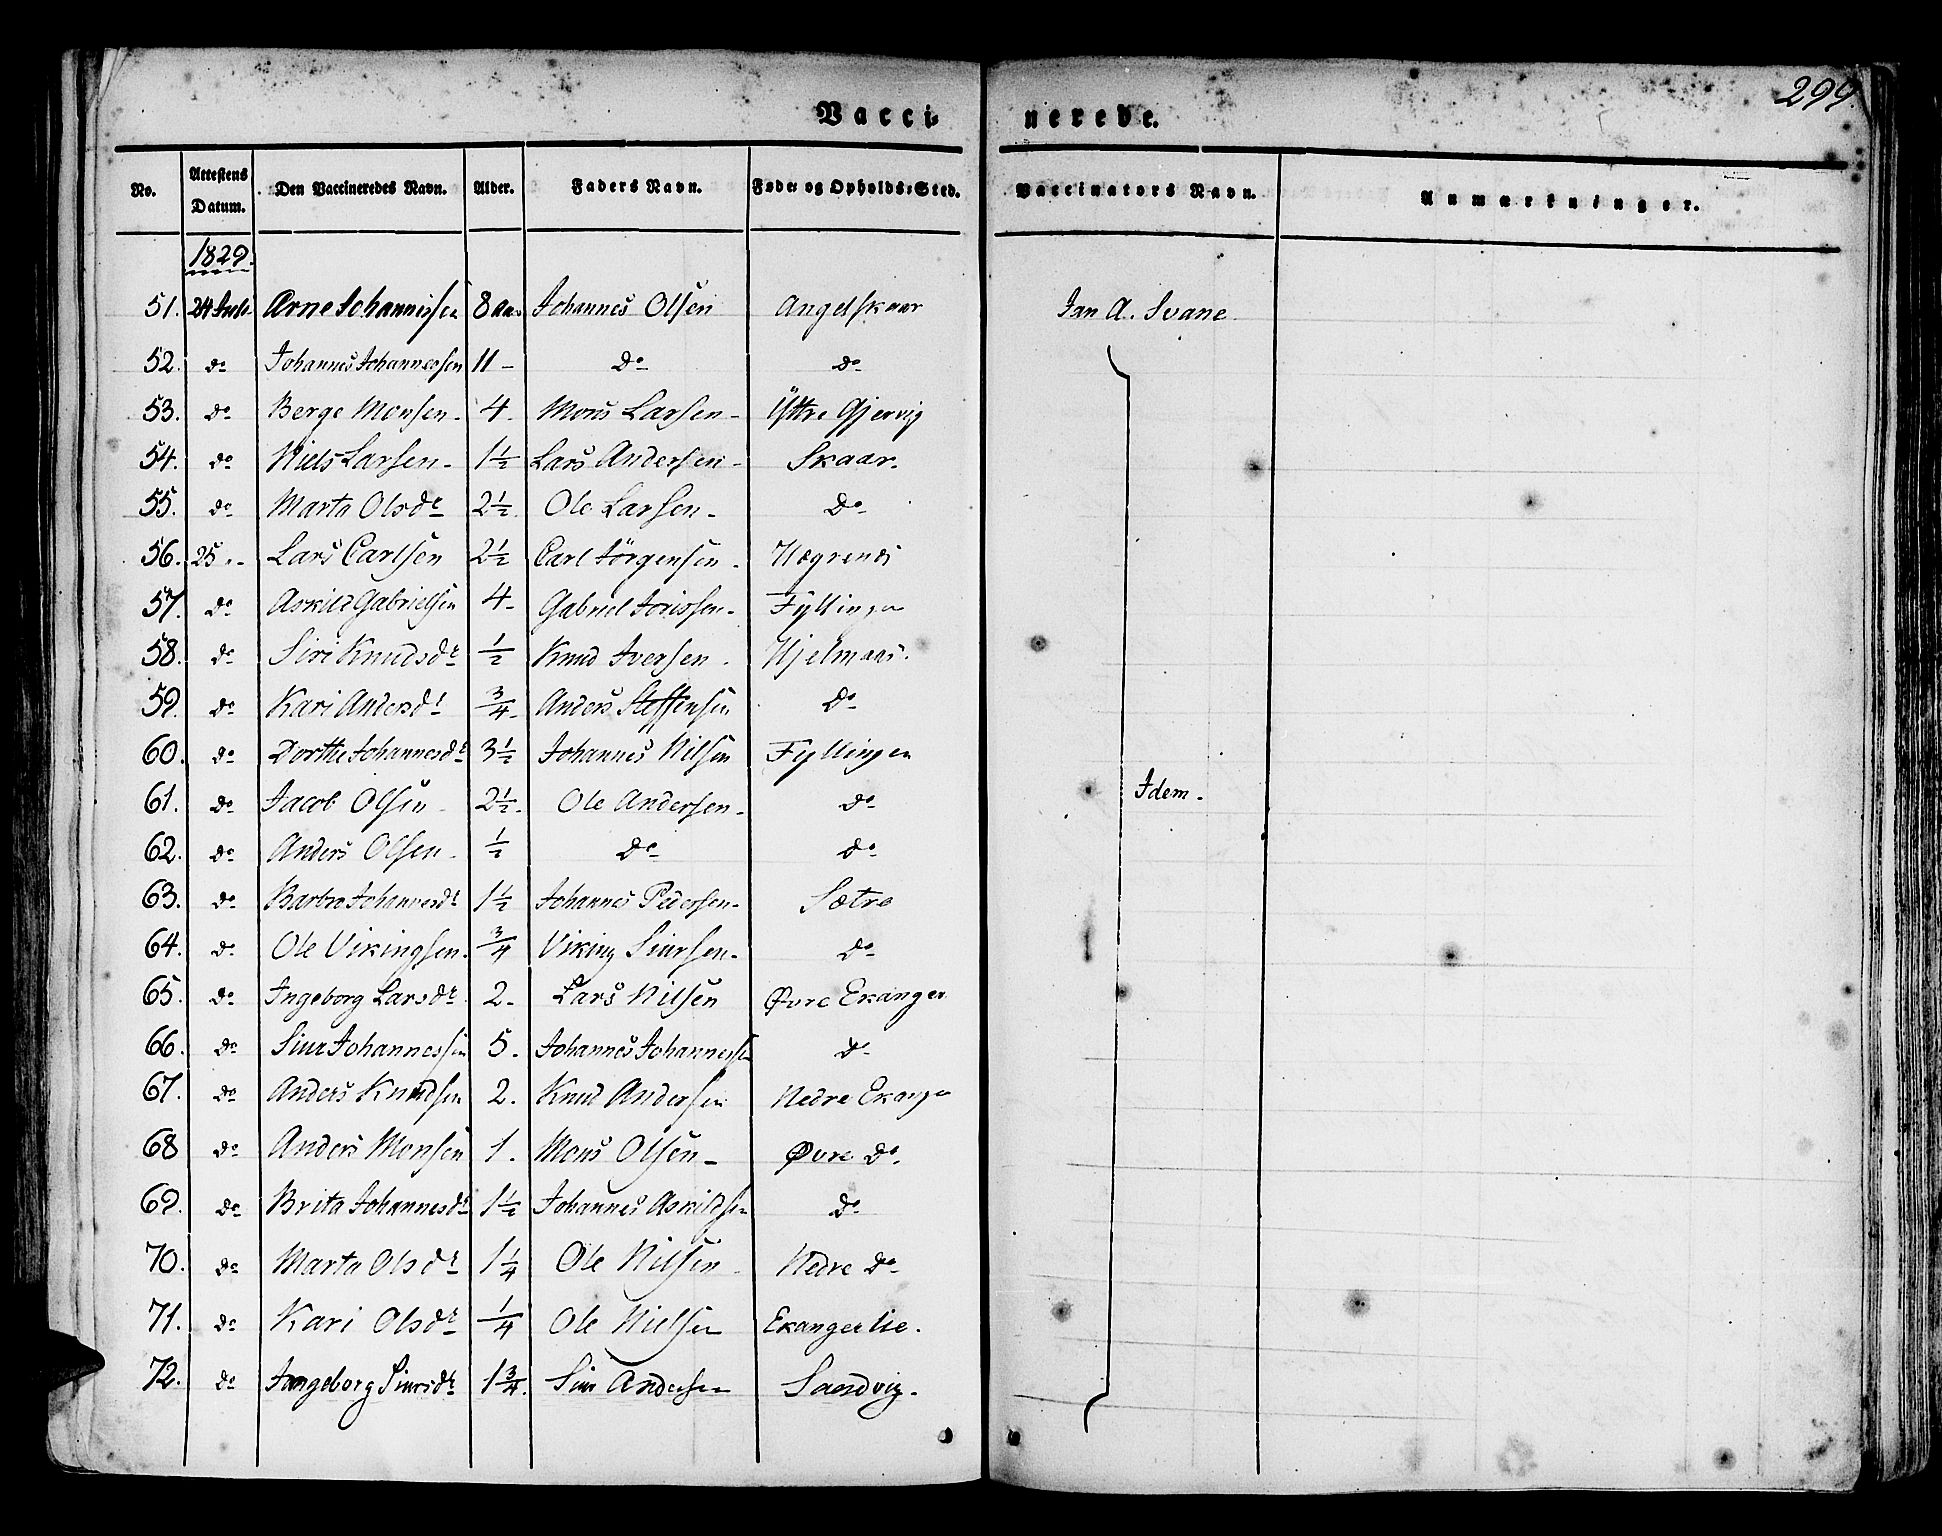 299.
Vacci- nerede.
No. Attestens Datum. Den Vaccineredes Navn. Alder. Faders Navn. Føde- og Opholds-Sted. Vaccinators Navn. Anmærkninger.
1829.
51. 24 Juli Arne Johannessen 8 Aar Johannes Olsen Angelskaar Jan A. Svane
52. do Johannes Johannessen 11 - do do
53. do Berge Monsen - 4. Mons Larsen - Yttre Gjervig
54. do Niels Larsen - 1½ Lars Andersen - Skaar.
55. do Marta Olsdr 2½. Ole Larsen - do
56. 25 "- Lars Carlsen 2½ Carl Jørgensen - Hægrenæs
57. do Askild Gabrielsen 4 - Gabriel Joris­sen - Fyllingen
58. do Siri Knudsdr ½ Knud Iversen . Hjelmaas.
59. do Kari Andersdr ¾ Anders Steffensen do
60. do Dorthe Johannesdr 3½ Johannes Nilsen Fyllingen
61. do Jacob Olsen - 2½. Ole Andersen - do Idem.
62. do Anders Olsen - ½ do do
63. do Barbro Johannesdr 1½ Johannes Pedersen - Sætre
64. do Ole Vikingsen. ¾ Viking Siursen - do
65. do Ingeborg Larsdr 2 - Lars Nilsen Øvre Ekanger
66. do Siur Johannessen 5. Johannes Johannessen do
67. do Anders Knudsen 2. Knud Andersen Nedre Ekanger
68 do Anders Monsen 1. Mons Olsen - Øvre do.
69. do Brita Johannesdr 1½ Johannes Askildsen do
70. do Marta Olsdr 1¼ Ole Nilsen Nedre do
71. do Kari Olsdr ¼ Ole Nielsen Ekangerlie.
72. do Ingeborg Siursdr 1¾. Siur Andersen Sandvig.